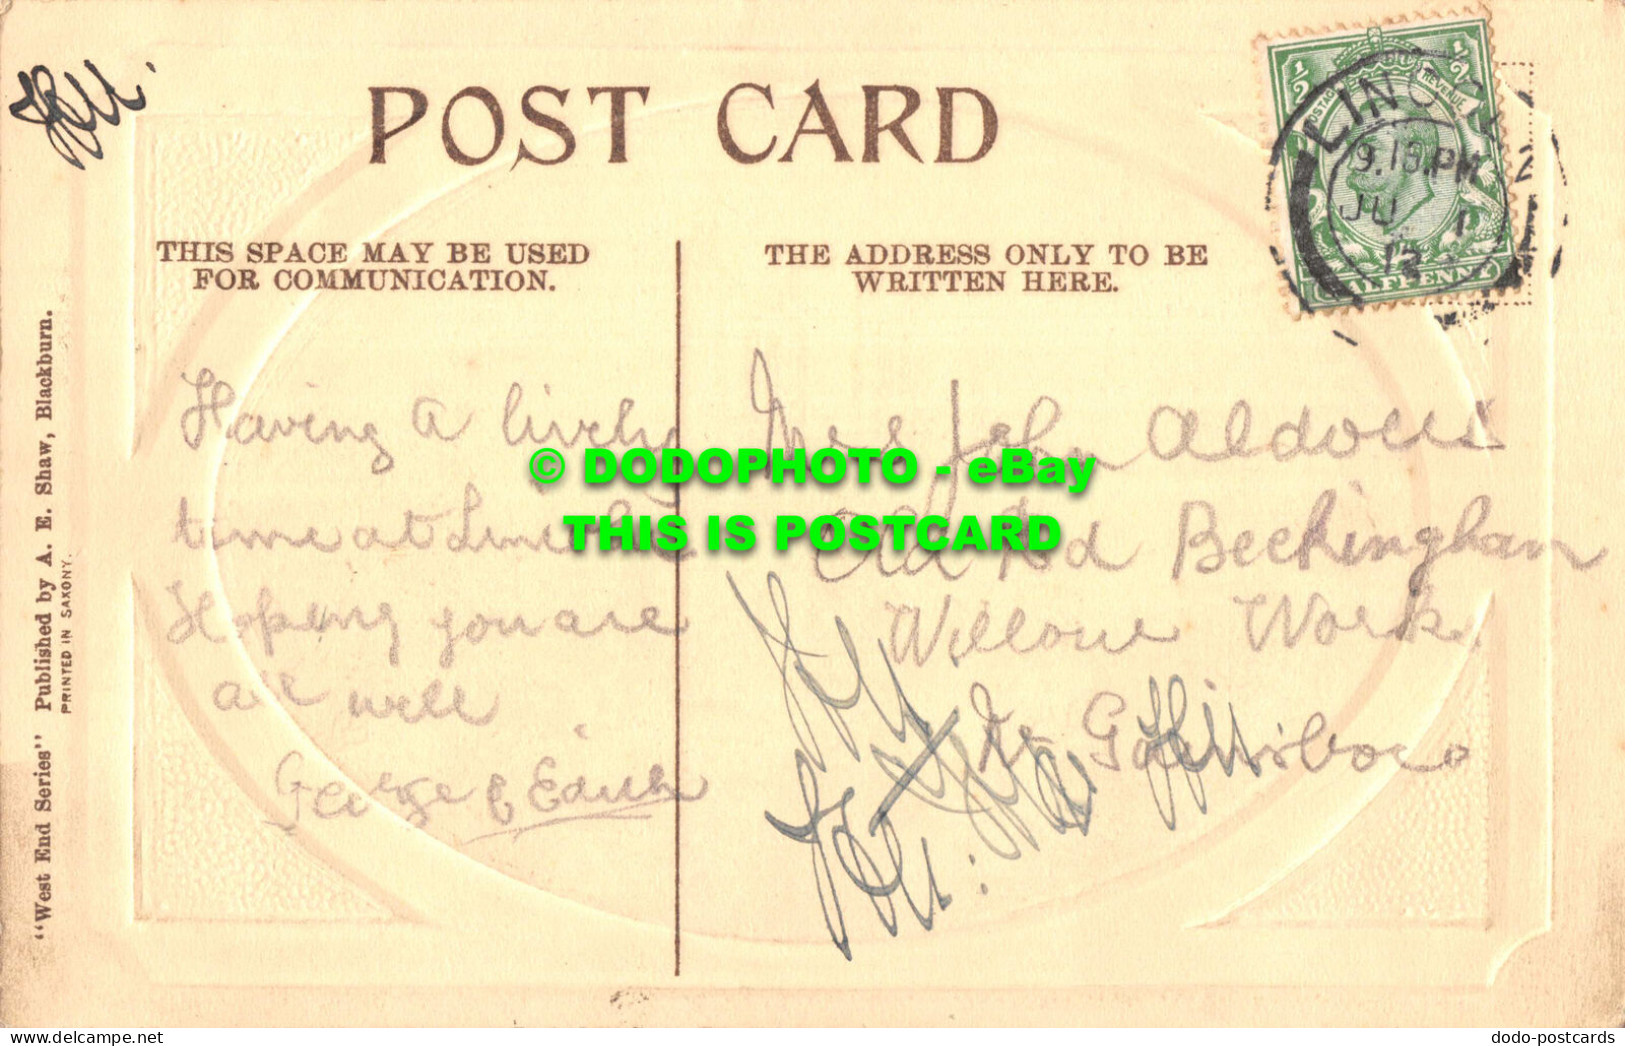 POST CARD
THIS SPACE MAY BE USED
FOR COMMUNICATION.
THE ADDRESS ONLY TO BE
WRITTEN HERE.
LINCOLN
9.15.PM
JU 1
12
2
½
½
POSTAGE
REVENUE
HALFPENNY
Having a lively
time at
Hoping you are
all well
George & Edith
Mrs John
Old Rd Beckingham
Willow Works
Nr Gainsboro
"West End Series" Published by A. E. Shaw, Blackburn.
PRINTED IN SAXONY.
© DODOPHOTO - eBay
THIS IS POSTCARD
dodo-postcards